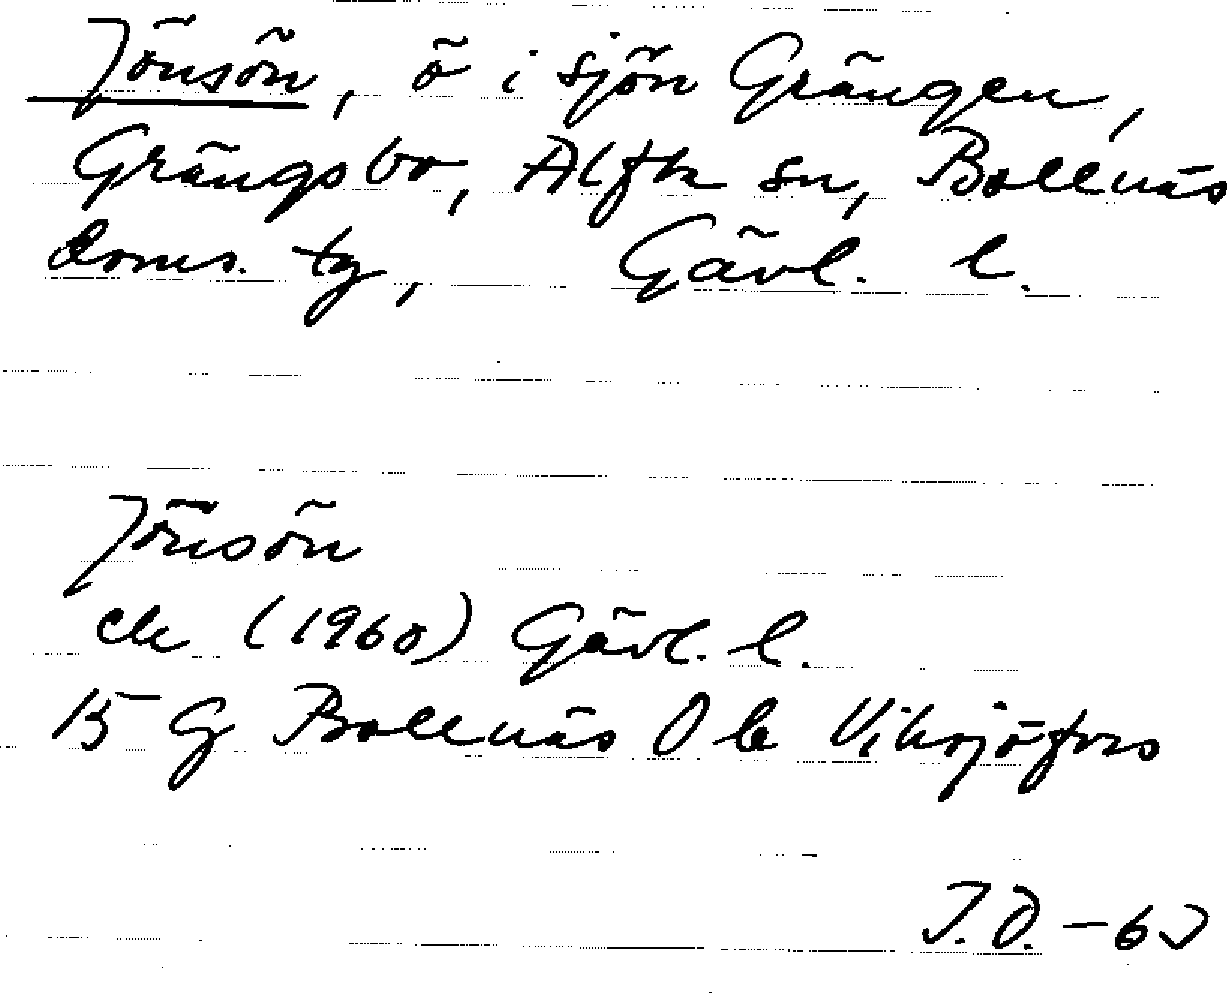 Jönsön, ö i sjön Grängen,
Grängsbo, Alfta sn, Bollnäs
doms. tg, Gävl. l.
Jönsön
ek (1960) Gävl. l.
15 G Bollnäs Ola Viksjöfors
J.Ö. -60